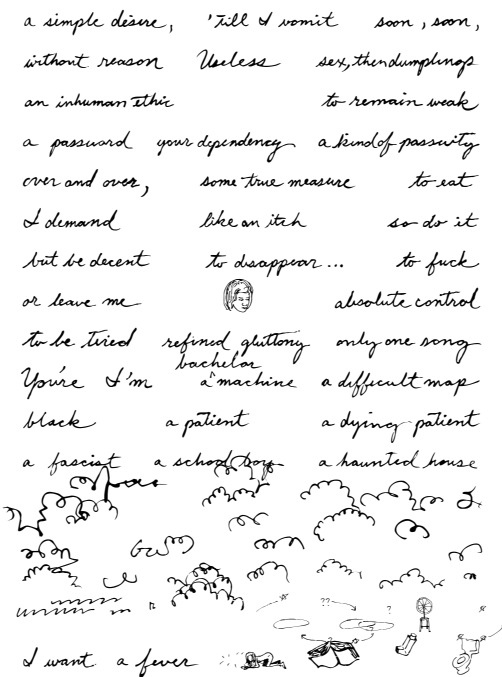 a simple desire, 'till I vomit soon, soon,
without reason Useless sex, then dumplings
an inhuman ethic to remain weak
a password your dependency a kind of passivity
over and over, some true measure to eat
I demand like an itch so do it
but be decent to disappear... to fuck
or leave me absolute control
to be tired refined gluttony only one song
bachelor
You're I'm a ^ machine a difficult map
black a patient a dying patient
a fascist a school boy a haunted house
?? ?
I want a fever